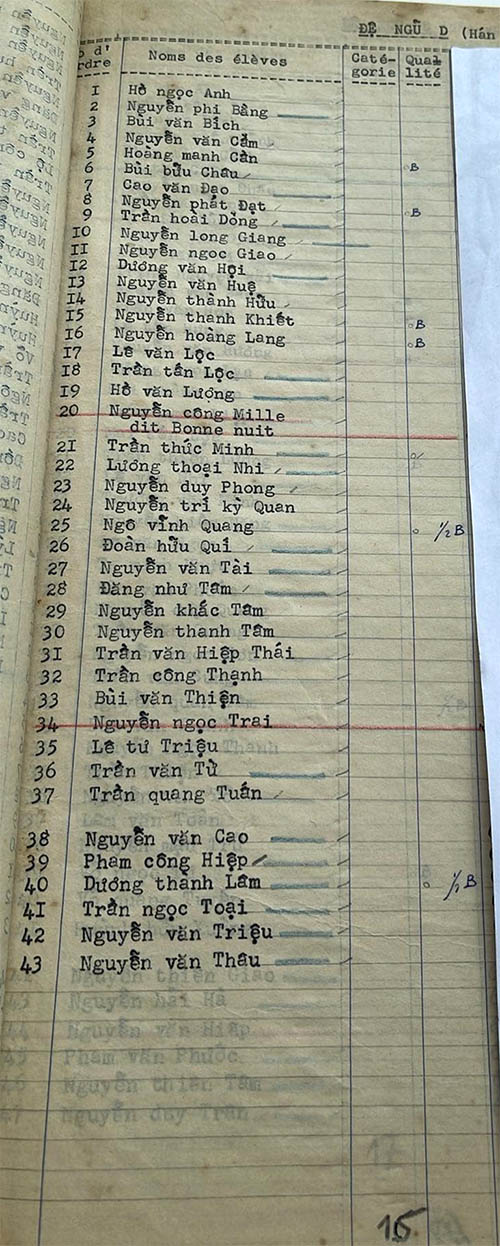 ĐỆ NGŨ D (Hán
d' Noms des élèves Caté- Qual
rdre gorie lité
1 Hồ ngọc Anh
2 Nguyễn phi Bằng
3 Bùi văn Bích
4 Nguyễn văn Cẩm
5 Hoàng manh Cần
6 Bùi bửu Châu B
7 Cao văn Đạo
8 Nguyễn phát Đạt B
9 Trần hoài Dỏng
10 Nguyễn long Giang
11 Nguyễn ngọc Giao
12 Dương văn Hội
13 Nguyễn văn Huệ
14 Nguyễn thành Hữu
15 Nguyễn thanh Khiết B
16 Nguyễn hoàng Lang B
17 Lê văn Lộc
18 Trần tấn Lộc
19 Hồ văn Lượng
20 Nguyễn công Mille
dit Bonne nuit
21 Trần thức Minh
22 Lương thoại Nhi
23 Nguyễn duy Phong
24 Nguyễn tri kỷ Quan
25 Ngô vĩnh Quang 1/2 B
26 Đoàn hữu Qui
27 Nguyễn văn Tài
28 Đăng như Tâm
29 Nguyễn khắc Tâm
30 Nguyễn thanh Tâm
31 Trần văn Hiệp Thái
32 Trần công Thạnh
33 Bùi văn Thiện
34 Nguyễn ngọc Trai
35 Lê tư Triệu
36 Trần văn Từ
37 Trần quang Tuấn
38 Nguyễn văn Cao
39 Phạm công Hiệp
40 Dương thành Lâm 1/2 B
41 Trần ngọc Toại
42 Nguyễn văn Triệu
43 Nguyễn văn Thâu
15